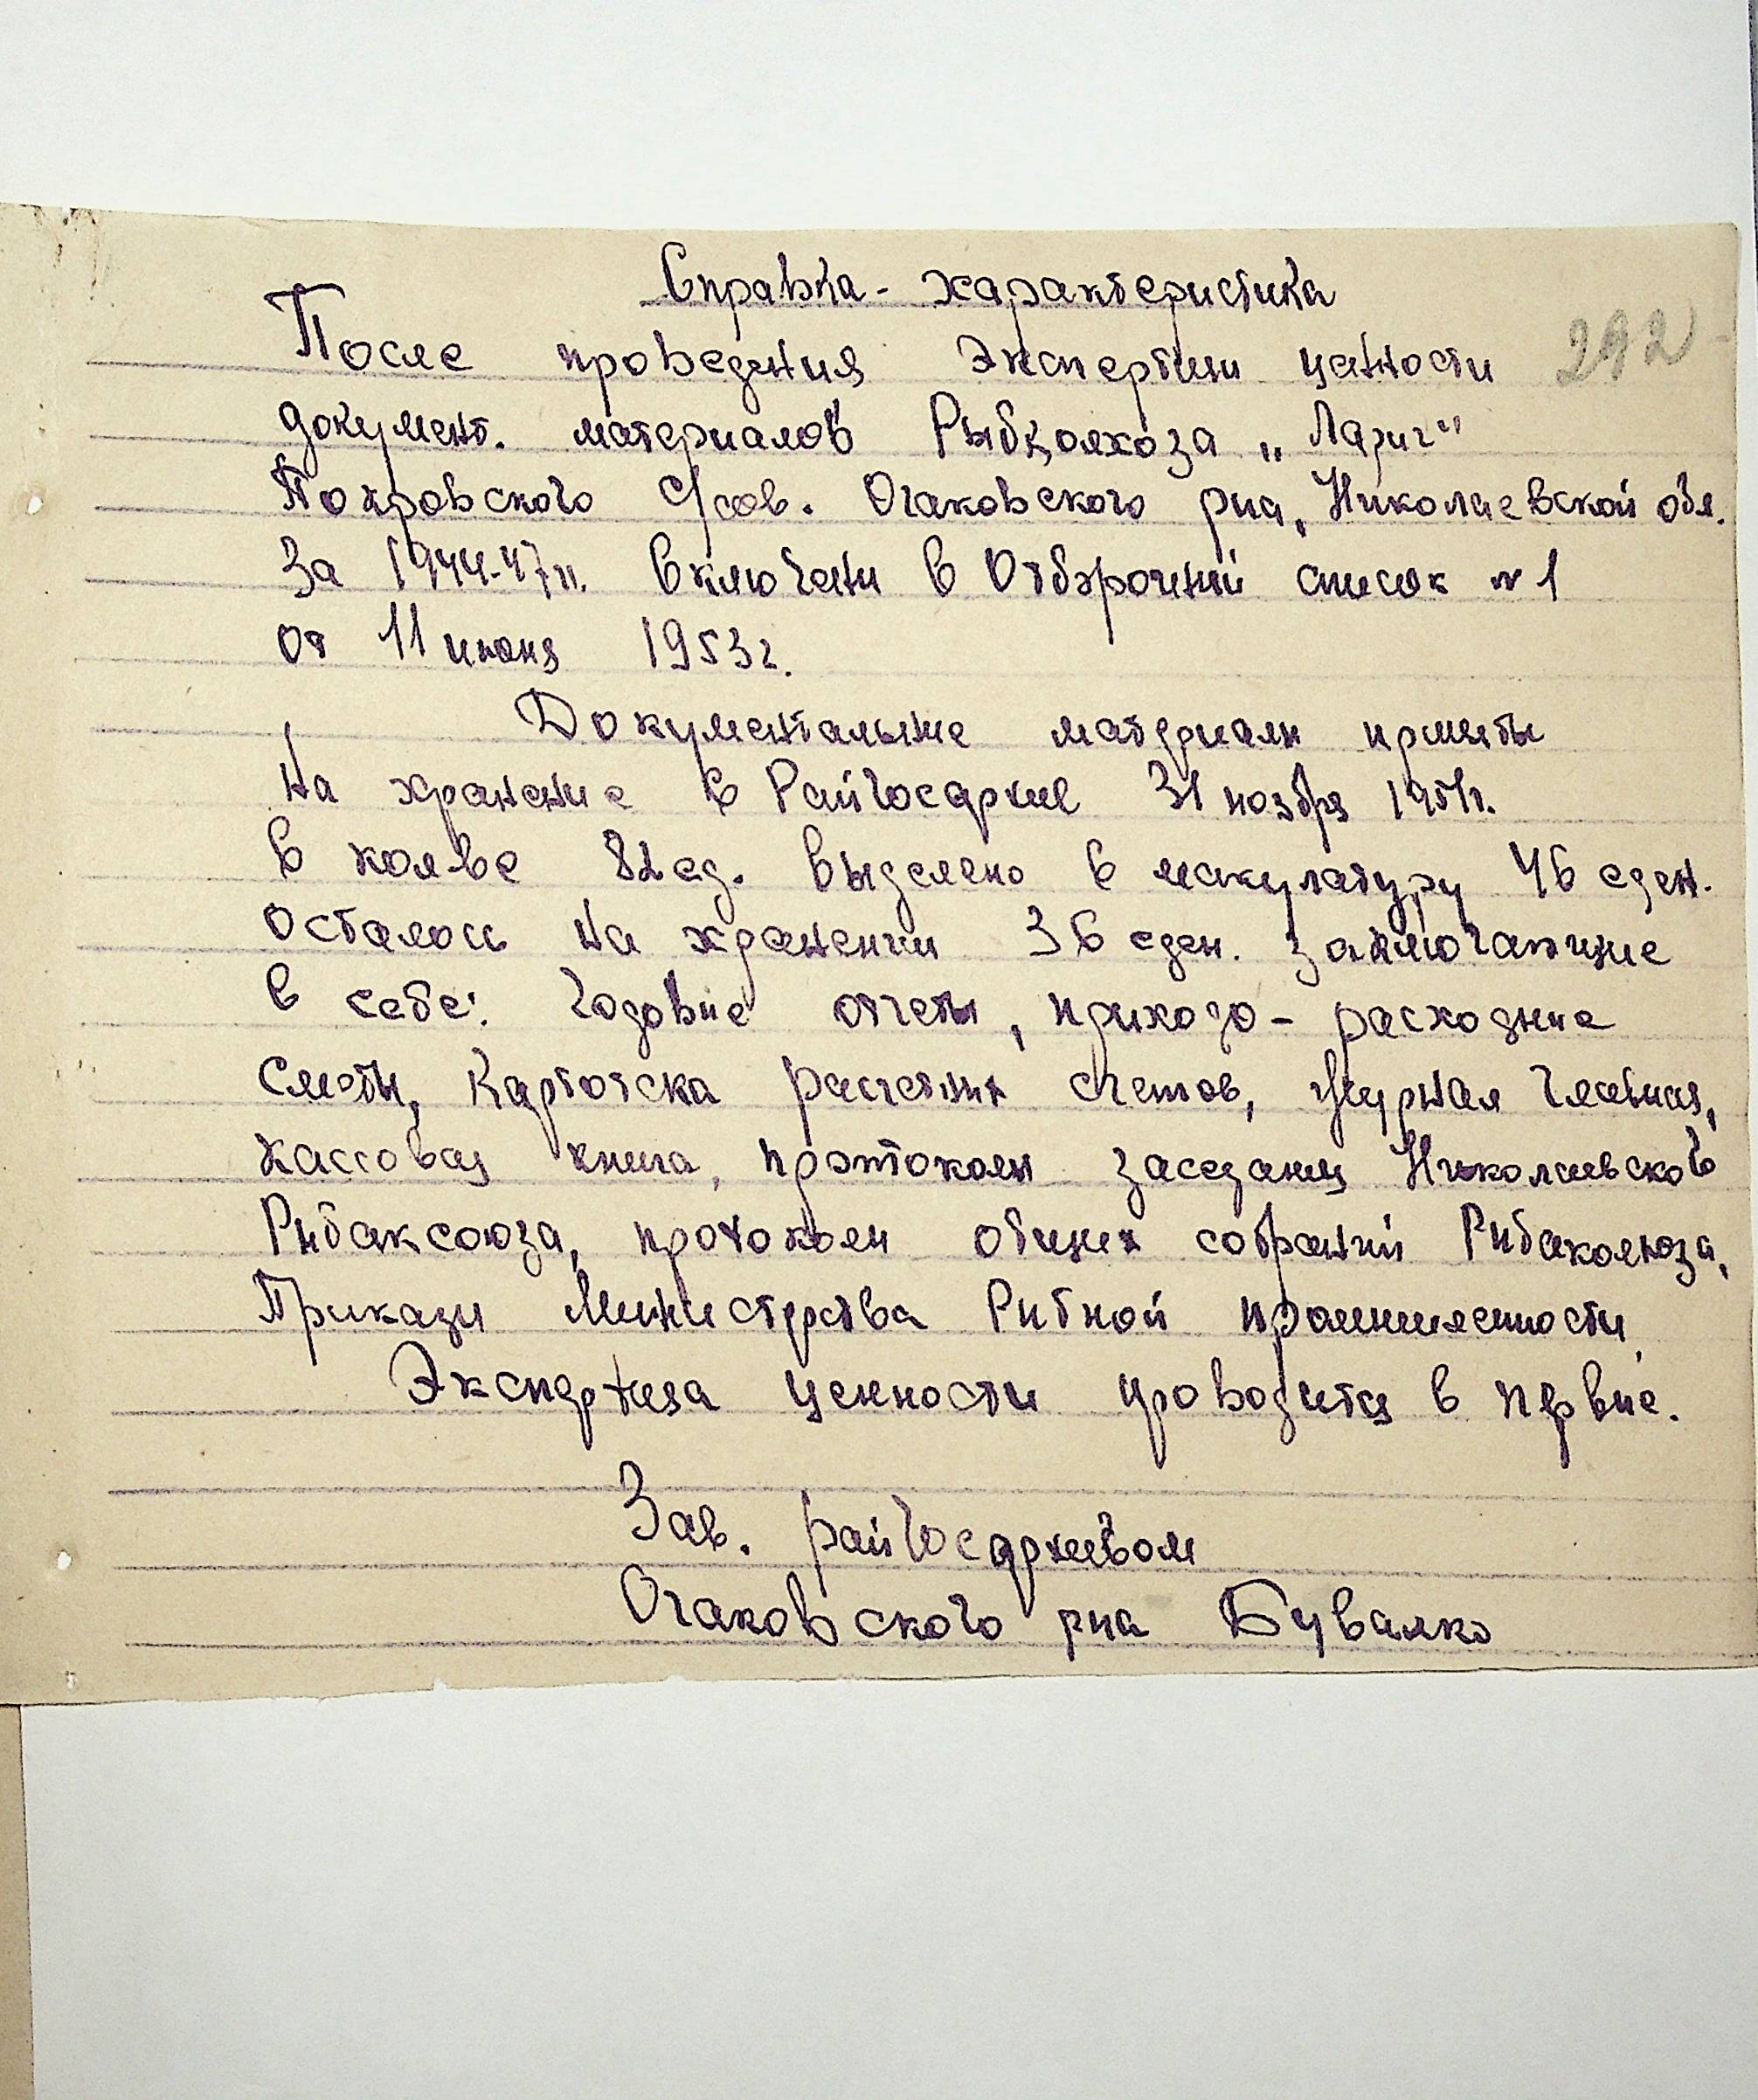 Справка - характеристика
После проведения Экспертизи ценности 292
документ. материалов Рыбколхоза „Ларич"
Покровского с/сов. Очаковского р-на, Николаевской обл.
За 1944-47гг. Включени в Отборочний список №1
от 11 июня 1953г.
Документальние материали приняты
на хранение в Райгосархив 31 ноября 1951г.
в кол-ве 82 ед. выделено в макулатуру 46 един.
осталось на хранении 36 един. заключающие
в себе: Годовие отчеты, приходо - расходние
сметы, Картотека расчетних счетов, Журнал главная,
кассовая книга, протоколи заседания Николаевского
Рибаксоюза, протоколи общих собраний Рибаколхоза,
Прикази Министрства Рибной промишлености.
Экспертиза ценности проводится в первие.
Зав. райгосархивом
Очаковского р-на Бувалко